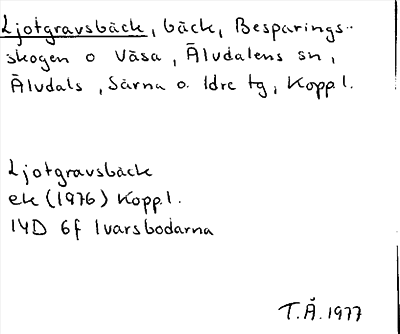 Ljotgravsbäck, bäck, Besparings-
skogen o Våsa, Älvdalens sn,
Älvdals, Särna o. Idre tg, Kopp.l.
Ljotgravsbäck
ek (1976) Kopp.l.
14D 6f Ivarsbodarna
T.Å. 1977